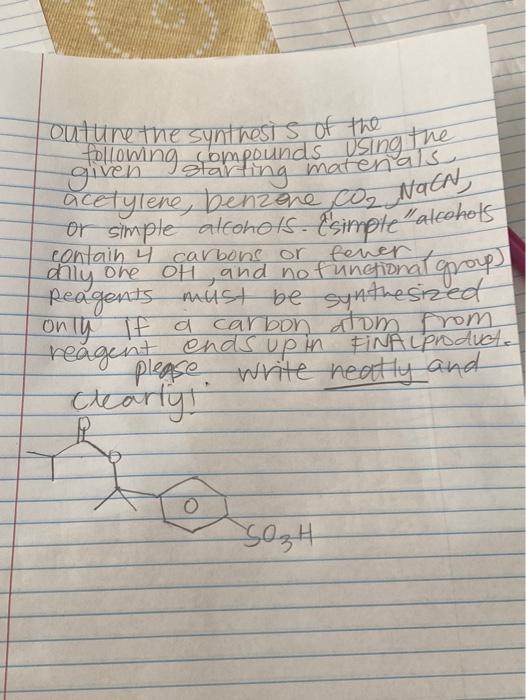 outline the synthesis of the
following compounds using the
given starting materials
acetylene, benzene, CO2, NaCN,
or simple alcohols. ("simple" alcohols
contain 4 carbons or fewer,
only one OH, and no functional group)
Reagents must be synthesized
only if a carbon atom from
reagent ends up in FINAL product.
please write neatly and
clearly!
O
O
O
SO3H